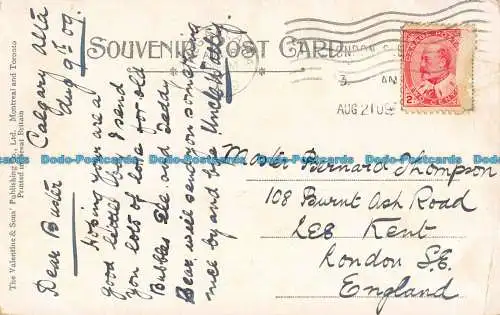 SOUVENIR POST CARD
LONDON S.
3 AM
AUG 21 09
CANADA POSTAGE
2
Calgary Alta
Aug 9th 09
Dear Buster
Hoping you are a
good little boy I send
you lots of love for old
Bubbles
Bear will send you something
nice by and bye Uncle
Master Bernard Thompson
108 Burnt Ash Road
Lee Kent
London S.E.
England
The Valentine & Sons' Publishing Co., Ltd. Montreal and Toronto
Printed in Great Britain
Dodo-Postcards Dodo-Postcards Dodo-Postcards Dodo-Postcards Dodo-Postcards